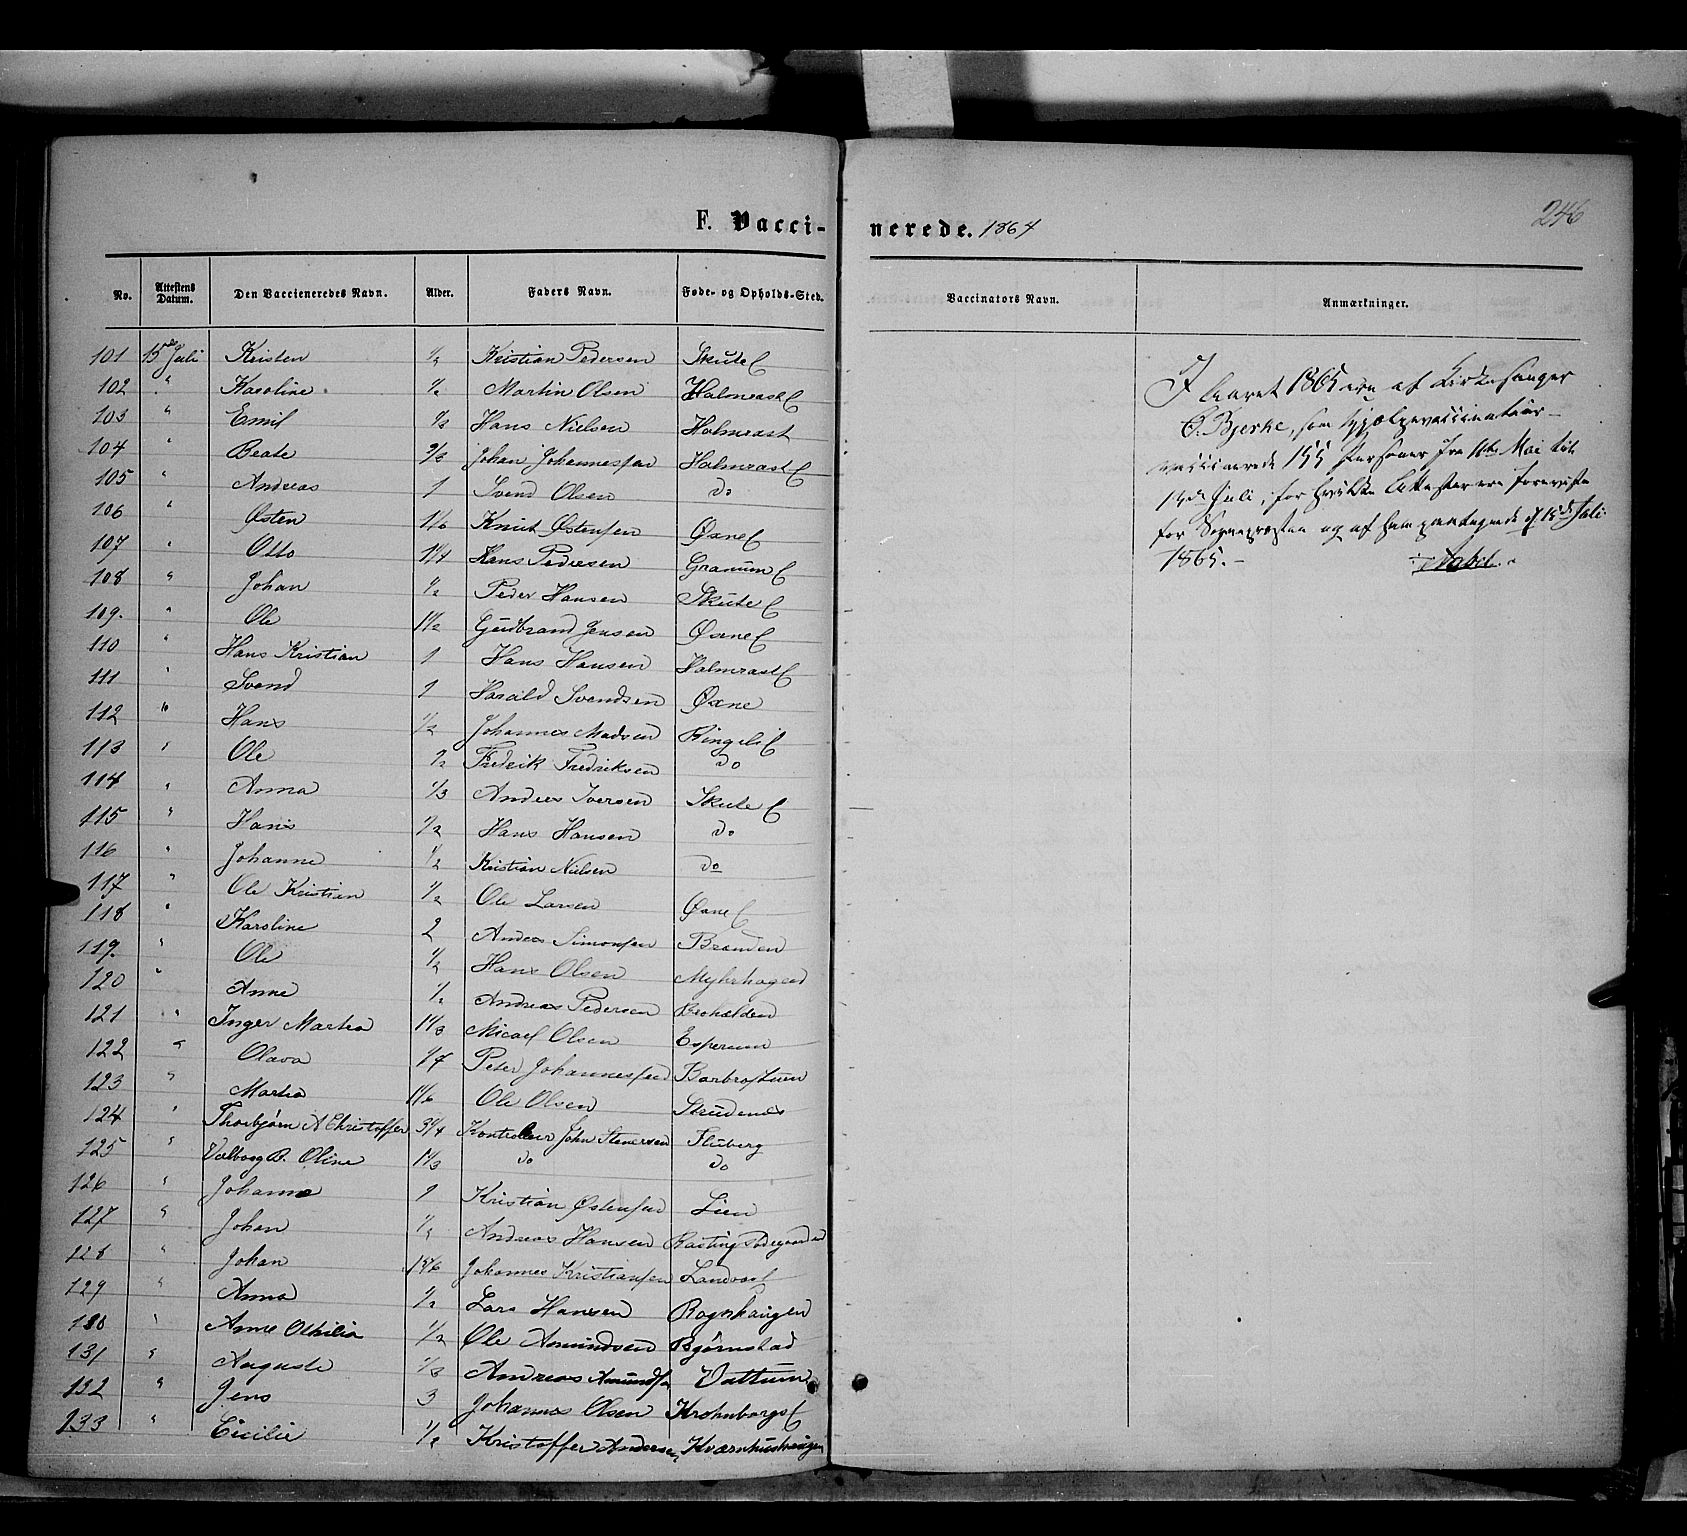 F. Vacci-
nerede. 1864
246
No. Attestens Datum. Den Vaccieneredes Navn. Alder. Faders Navn. Føde- og Opholds-Sted. Vaccinators Navn. Anmærkninger.
101 15de Juli Kristen 1/2 Kristian Pedersen Skute E
102 " Karoline 1/2 Martin Olsen Halmrast E
103 " Emil 1/2 Hans Nielsen Holmrast
104 " Beate 2/3 Johan Johannessen Halmrast E
105 " Andreas 1 Svend Olsen do
106 " Østen 1 1/6 Knut Østensen Øxne E
107 " Otto 1 1/4 Hans Pedersen Granum E
108 " Johan 1/2 Peder Hansen Skute E
109. " Ole 1 1/2 Gudbrand Jensen Øxne E
110 " Hans Kristian 1 Hans Hansen Halmrast E
111 " Svend 1 Harald Svendsen Øxne
112 " Hans 1/2 Johannes Madsen Ringeli E
113 " Ole 1/2 Fredrik Fredriksen do
114 " Anna 1/3 Anders Iversen Skute E
115 " Hans 1/2 Hans Hansen do
116 " Johanne 1/2 Kristian Nielsen do
117 " Ole Kristian 1/2 Ole Larsen Øxne E
118 " Karoline 2 Anders Simonsen Branden
119. " Ole 1/2 Hans Olsen Myhrhagen
120 " Anne 1/2 Andreas Pedersen
121 " Inger Martea 1 1/3 Micael Olsen Esperum
122 " Olava 1/4 Peter Johannessen Barbrostuen
123 " Martea 1 1/6 Ole Olsen Strudenæs
124 " Thorbjørn A Christoffer 3 1/4 Kontrolleur John Stenersen Fluberg
125 " Valborg B. Oline 1 1/3 do do
126 " Johanne 1 Kristian Østensen Lien
127 " Johan 1/2 Andreas Hansen
128 " Johan 1 5/6 Johannes Kristiansen Landaas E
129 " Anna 1/2 Lars Hansen Rognhaugen
130 " Anne Othilia 1/2 Ole Amundsen Bjørnstad
131 " Auguste 1/3 Andreas Amunds Vattum
132 " Jens 3 Johannes Olsen Krohnborgs E
133 " Cicilie 1/2 Kristoffer Andersen Kværnhushaugen
I Aaret 1865 ere af Kirkesanger
O. Bjerke, som Hjælpevaccinatør
vaccinerede 155 Personer fra 16de Mai til
14de Juli, for hvilke Attester ere foreviste
for Sognepræsten og af ham paategnede d. 15de Juli
1865. -